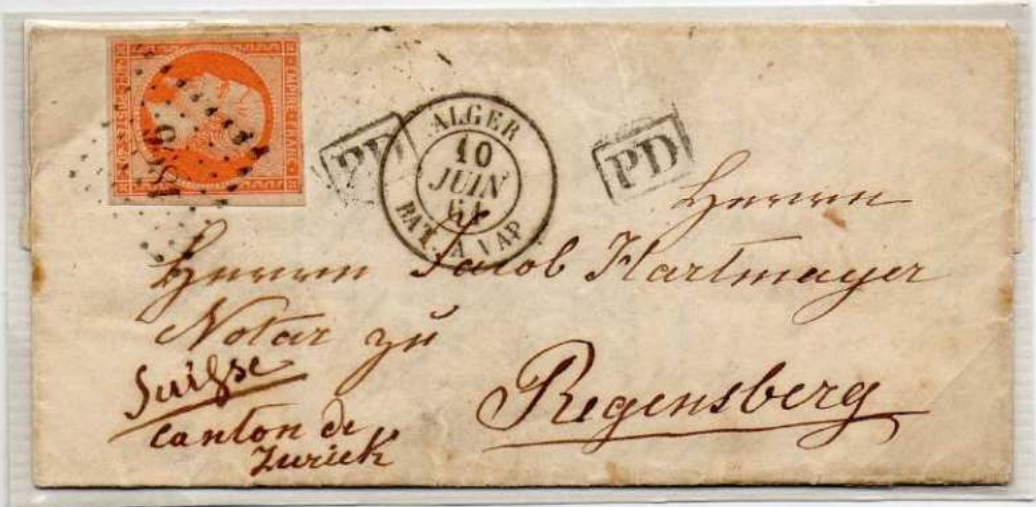 EMPIRE FRANC
ALGER
10
JUIN
61
BAT. A VAP
PD
PD
Herrn
Herrn Jacob Hartmayer
Notar zu
Regensberg
Suisse
canton de
Zurich